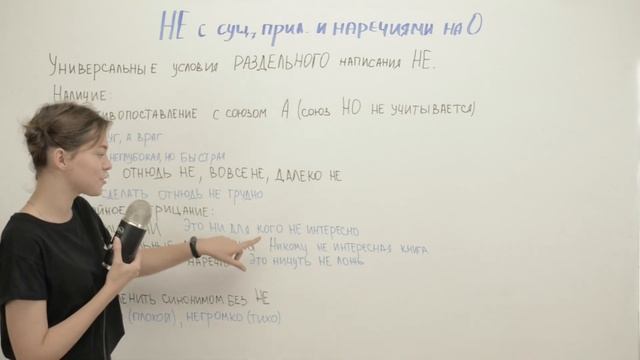 НЕ с сущ., прил. и наречиями на О
Универсальные условия РАЗДЕЛЬНОГО написания НЕ.
Наличие:
с союзом А (союз НО не учитывается)
а враг
но быстрая
ОТНЮДЬ НЕ, ВОВСЕ НЕ, ДАЛЕКО НЕ
отнюдь не трудно
Это ни для кого не интересно
Никому не интересная книга
Это ничуть не ложь
синонимом без НЕ
(плохой), негромко (тихо)